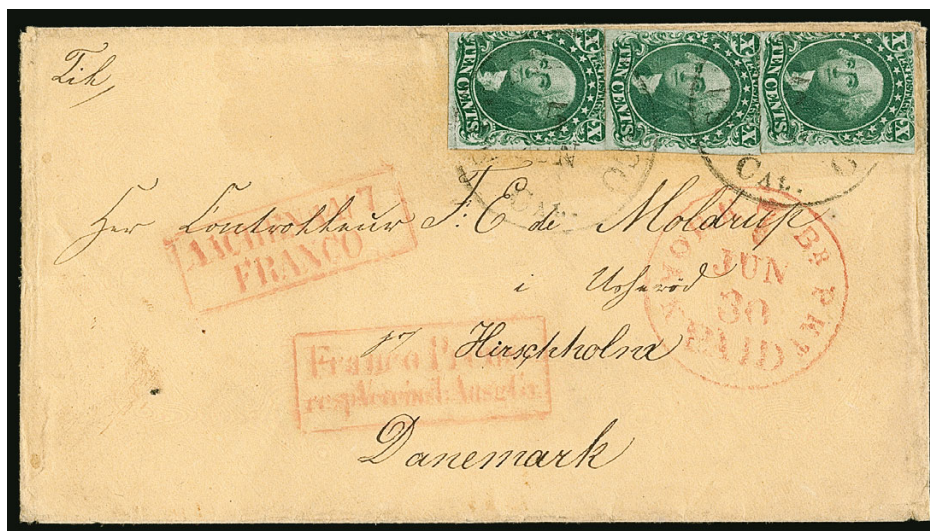 Til
X TEN CENTS X
X TEN CENTS X
X TEN CENTS X
CAL.
CAL.
Herr Controlleur F. E. de Moldrup
i Usserød
pr Hirschholm
Danemark
AACHEN 14/7
FRANCO
Franco Preuss.
resp. Vereinsl: Ausg Gr.
NEW YORK BR PKT
7
JUN
30
PAID